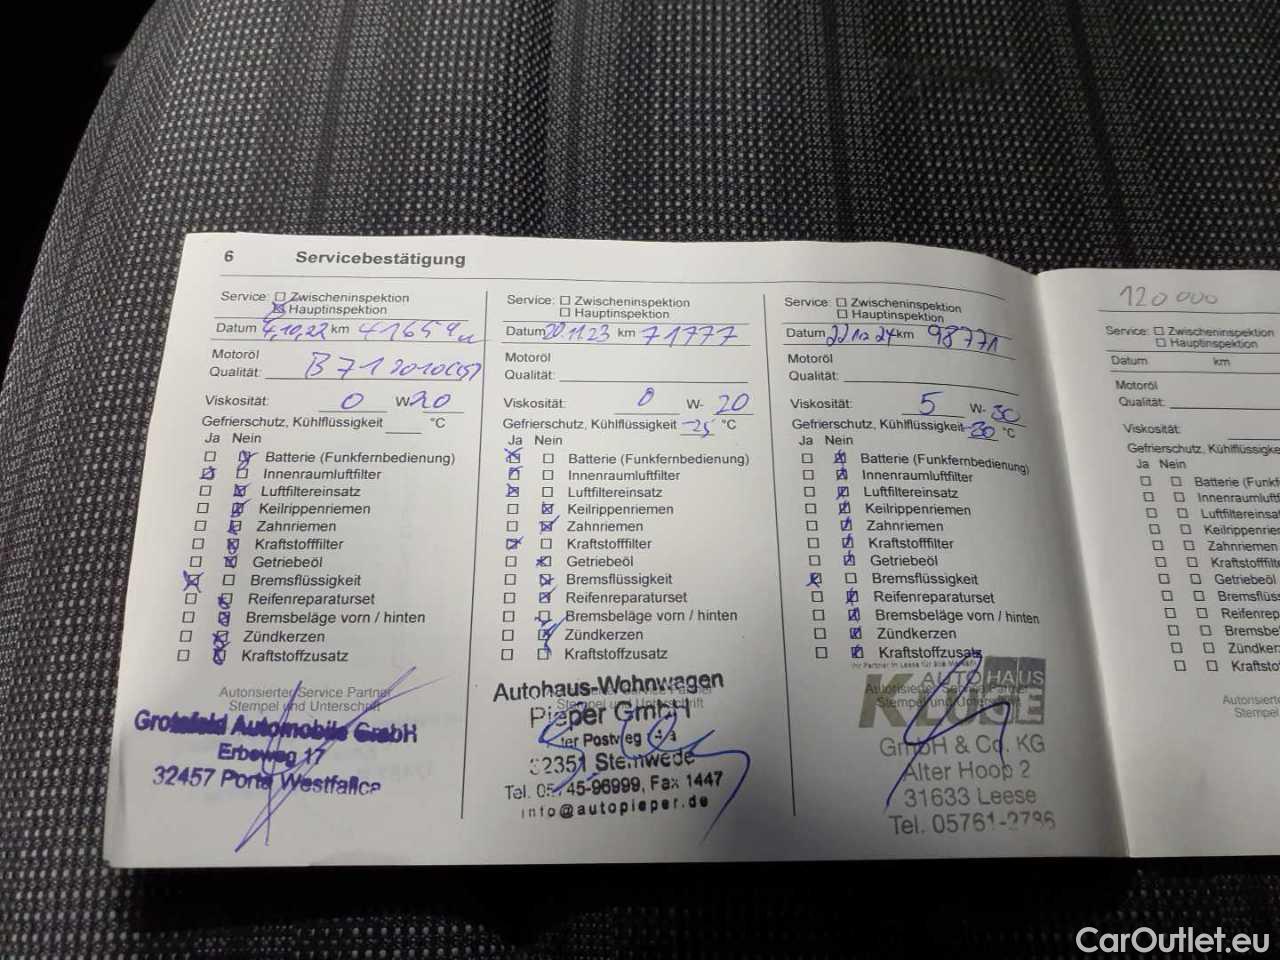 6 Servicebestätigung
Service: Zwischeninspektion
Hauptinspektion
Datum 4.10.22 km 41659
Motoröl
Qualität: B 71 2010 (S)
Viskosität: 0 W 20
Gefrierschutz, Kühlflüssigkeit °C
Ja Nein
Batterie (Funkfernbedienung)
Innenraumluftfilter
Luftfiltereinsatz
Keilrippenriemen
Zahnriemen
Kraftstofffilter
Getriebeöl
Bremsflüssigkeit
Reifenreparaturset
Bremsbeläge vorn / hinten
Zündkerzen
Kraftstoffzusatz
Autorisierter Service Partner
Stempel und Unterschrift
Grotefeld Automobile GmbH
Erbeweg 17
32457 Porta Westfalica
Service: Zwischeninspektion
Hauptinspektion
Datum 20.11.23 km 71777
Motoröl
Qualität:
Viskosität: 0 W- 20
Gefrierschutz, Kühlflüssigkeit -25 °C
Ja Nein
Batterie (Funkfernbedienung)
Innenraumluftfilter
Luftfiltereinsatz
Keilrippenriemen
Zahnriemen
Kraftstofffilter
Getriebeöl
Bremsflüssigkeit
Reifenreparaturset
Bremsbeläge vorn / hinten
Zündkerzen
Kraftstoffzusatz
Service Partner
Stempel und Unterschrift
Autohaus-Wohnwagen
Pieper GmbH
Postweg
32351 Stemwede
Tel. 05745-96999, Fax 1447
info@autopieper.de
Service: Zwischeninspektion
Hauptinspektion
Datum 22 10 24 km 98771
Motoröl
Qualität:
Viskosität: 5 W- 30
Gefrierschutz, Kühlflüssigkeit -30 °C
Ja Nein
Batterie (Funkfernbedienung)
Innenraumluftfilter
Luftfiltereinsatz
Keilrippenriemen
Zahnriemen
Kraftstofffilter
Getriebeöl
Bremsflüssigkeit
Reifenreparaturset
Bremsbeläge vorn / hinten
Zündkerzen
Kraftstoffzusatz
Ihr Partner in Leese für alle Marken
Autorisierter Service Partner
Stempel und Unterschrift
AUTOHAUS
KLUSE
GmbH & Co. KG
Alter Hoop 2
31633 Leese
Tel. 05761-2786
120 000
Service: Zwischeninspektion
Hauptinspektion
Datum km
Motoröl
Qualität:
Viskosität:
Gefrierschutz, Kühlflüssigke
Ja Nein
Batterie (Funkf
Innenraumluft
Luftfiltereinsat
Keilrippenrie
Zahnriemen
Kraftstofffilte
Getriebeöl
Bremsflüss
Reifenrepa
Bremsbelä
Zündkerze
Kraftsto
Autorisiert
Stempel
CarOutlet.eu